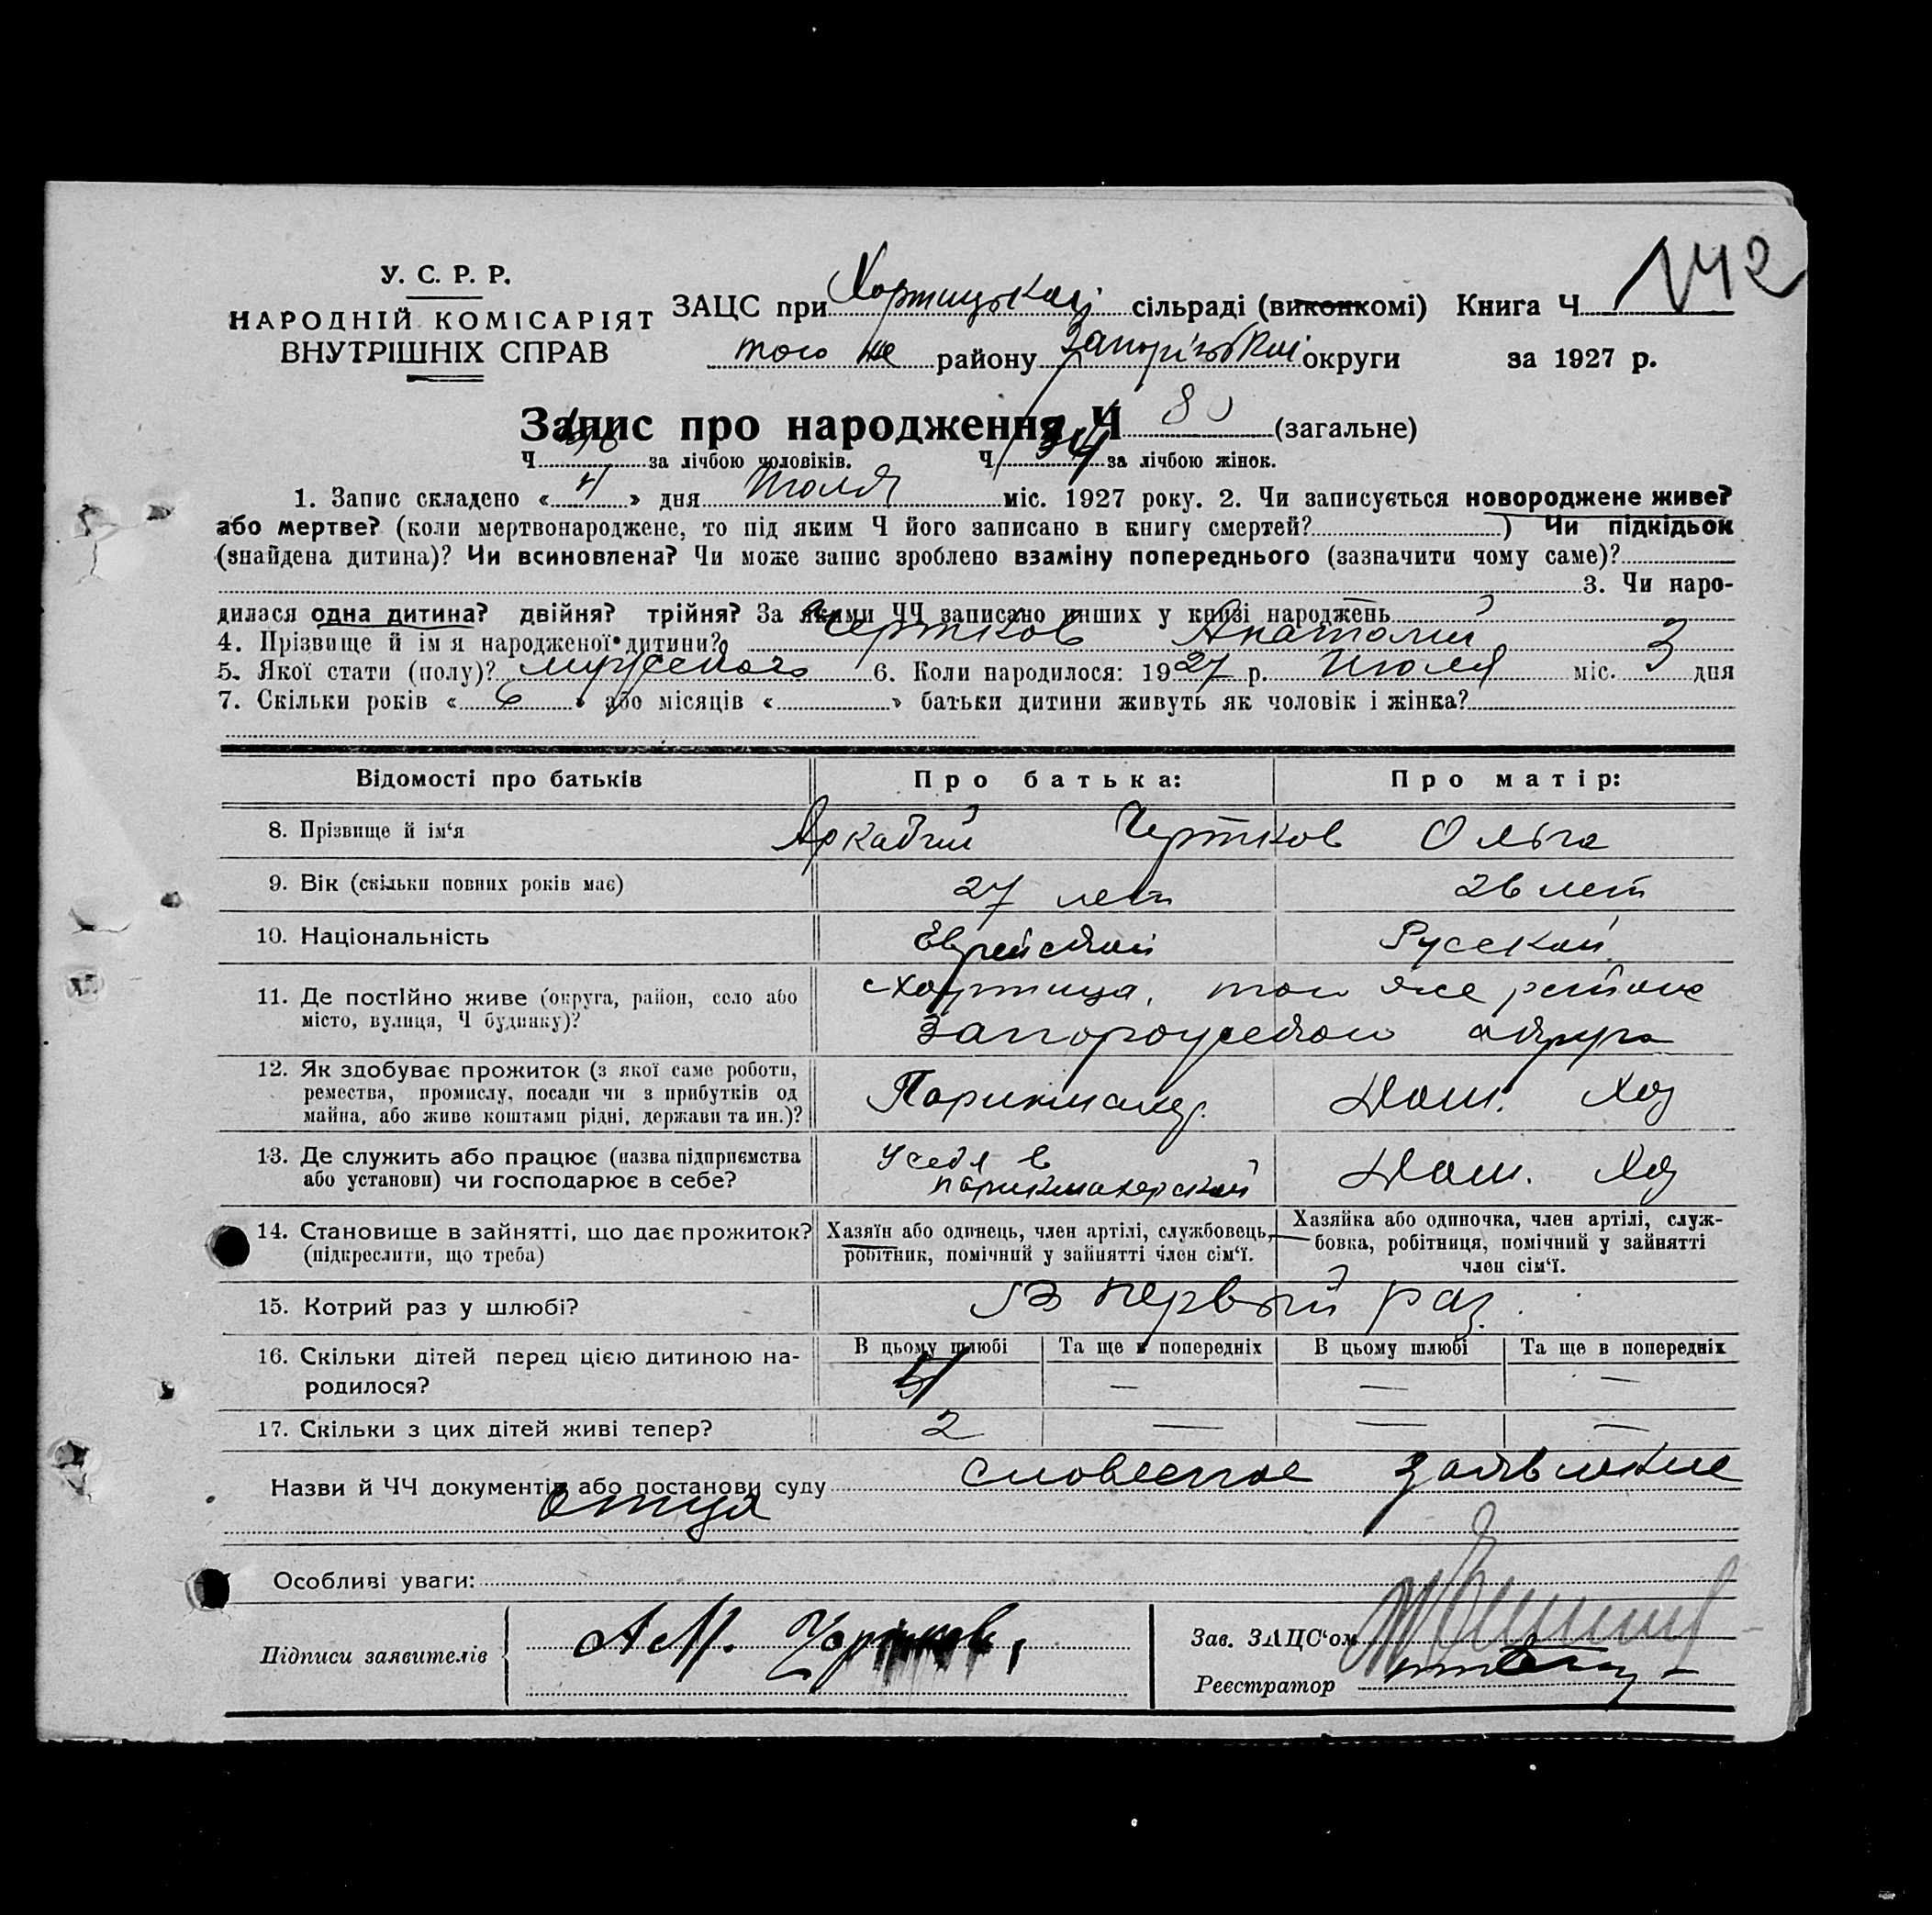 142
У. С. Р. Р.
НАРОДНІЙ КОМІСАРІЯТ
ВНУТРІШНІХ СПРАВ
ЗАЦС при Хортицькій сільраді (виконкомі) Книга Ч
того же району Запоріжськой округи за 1927 р.
Запис про народження Ч 80 (загальне)
Ч за лічбою чоловіків. Ч 34 за лічбою жінок.
1. Запис складено « 4 » дня Июля міс. 1927 року. 2. Чи записується новороджене живе?
або мертве? (коли мертвонароджене, то під яким Ч його записано в книгу смертей? ) Чи підкідьок
(знайдена дитина)? Чи всиновлена? Чи може запис зроблено взаміну попереднього (зазначити чому саме)?
3. Чи наро-
дилася одна дитина? двійня? трійня? За якими ЧЧ записано инших у книзі народжень
4. Прізвище й ім'я народженої дитини? Чертков Анатолий
5. Якої стати (полу)? мужского 6. Коли народилося: 1927 р. Июля міс. 3 дня
7. Скільки років « 6 » або місяців « » батьки дитини живуть як чоловік і жінка?
Відомості про батьків Про батька: Про матір:
8. Прізвище й ім'я Аркадий Чертков Ольга
9. Вік (скільки повних років має) 27 лет 26 лет
10. Національність Еврейской Русской
11. Де постійно живе (округа, район, село або
місто, вулиця, Ч будинку)?
Хортица, того же района
Запорожской округа
12. Як здобуває прожиток (з якої саме роботи,
ремества, промислу, посади чи з прибутків од
майна, або живе коштами рідні, держави та ин.)?
Парикмахер. Дом. Хоз
13. Де служить або працює (назва підприємства
або установи) чи господарює в себе?
У себя в
парикмахерской
Дом. Хоз
14. Становище в зайнятті, що дає прожиток?
(підкреслити, що треба)
Хазяїн або одинець, член артілі, службовець,
робітник, помічний у зайнятті член сім'ї.
Хазяйка або одиночка, член артілі, служ-
бовка, робітниця, помічний у зайнятті
член сім'ї.
15. Котрий раз у шлюбі? В первый раз.
16. Скільки дітей перед цією дитиною на-
родилося?
В цьому шлюбі Та ще в попередніх В цьому шлюбі Та ще в попередніх
— — —
17. Скільки з цих дітей живі тепер? 2 — — —
Назви й ЧЧ документів або постанови суду словесное заявление
отца
Особливі уваги:
Підписи заявителів А М. Чертков
Зав. ЗАЦС'ом
Реєстратор